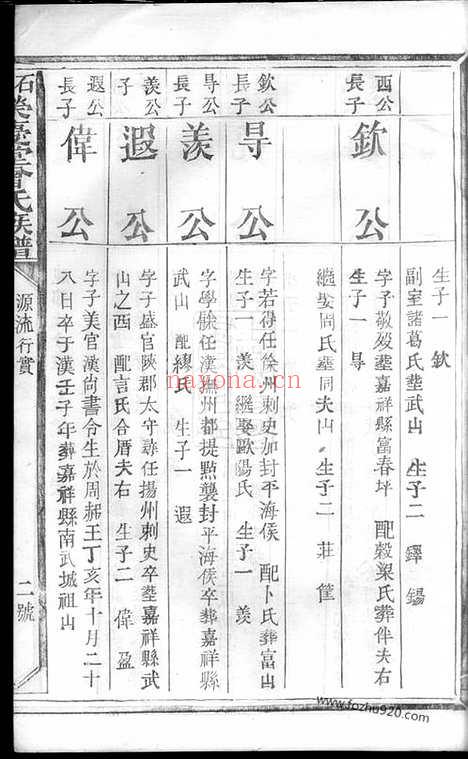 生子一 欽
副室諸葛氏塟武山 生子二 鐸 錫
西公長子
欽公
字予敬歿塟嘉祥縣富春坪 配穀梁氏葬伴夫右
生子一 㝵
繼娶周氏塟同夫山 生子二 莊 筐
欽公長子
㝵公
字若得任徐州刺史加封平海侯 配卜氏葬富山
生子一 羨 繼娶歐陽氏 生子一 羨
㝵公長子
羨公
字學 任漢撫州都提點襲封平海侯卒葬嘉祥縣
武山 配繆氏 生子一 遐
羨公子
遐公
字子盛官陝郡太守尋任揚州刺史卒塟嘉祥縣武
山之西 配言氏合厝夫右 生子二 偉 盈
遐公長子
偉公
字子美官漢尚書令生於周赧王丁亥年十月二十
八日卒于漢壬子年葬嘉祥縣南武城祖山
曾氏族譜
源流行實
二號
nayona.cn
www.fozhu920.com